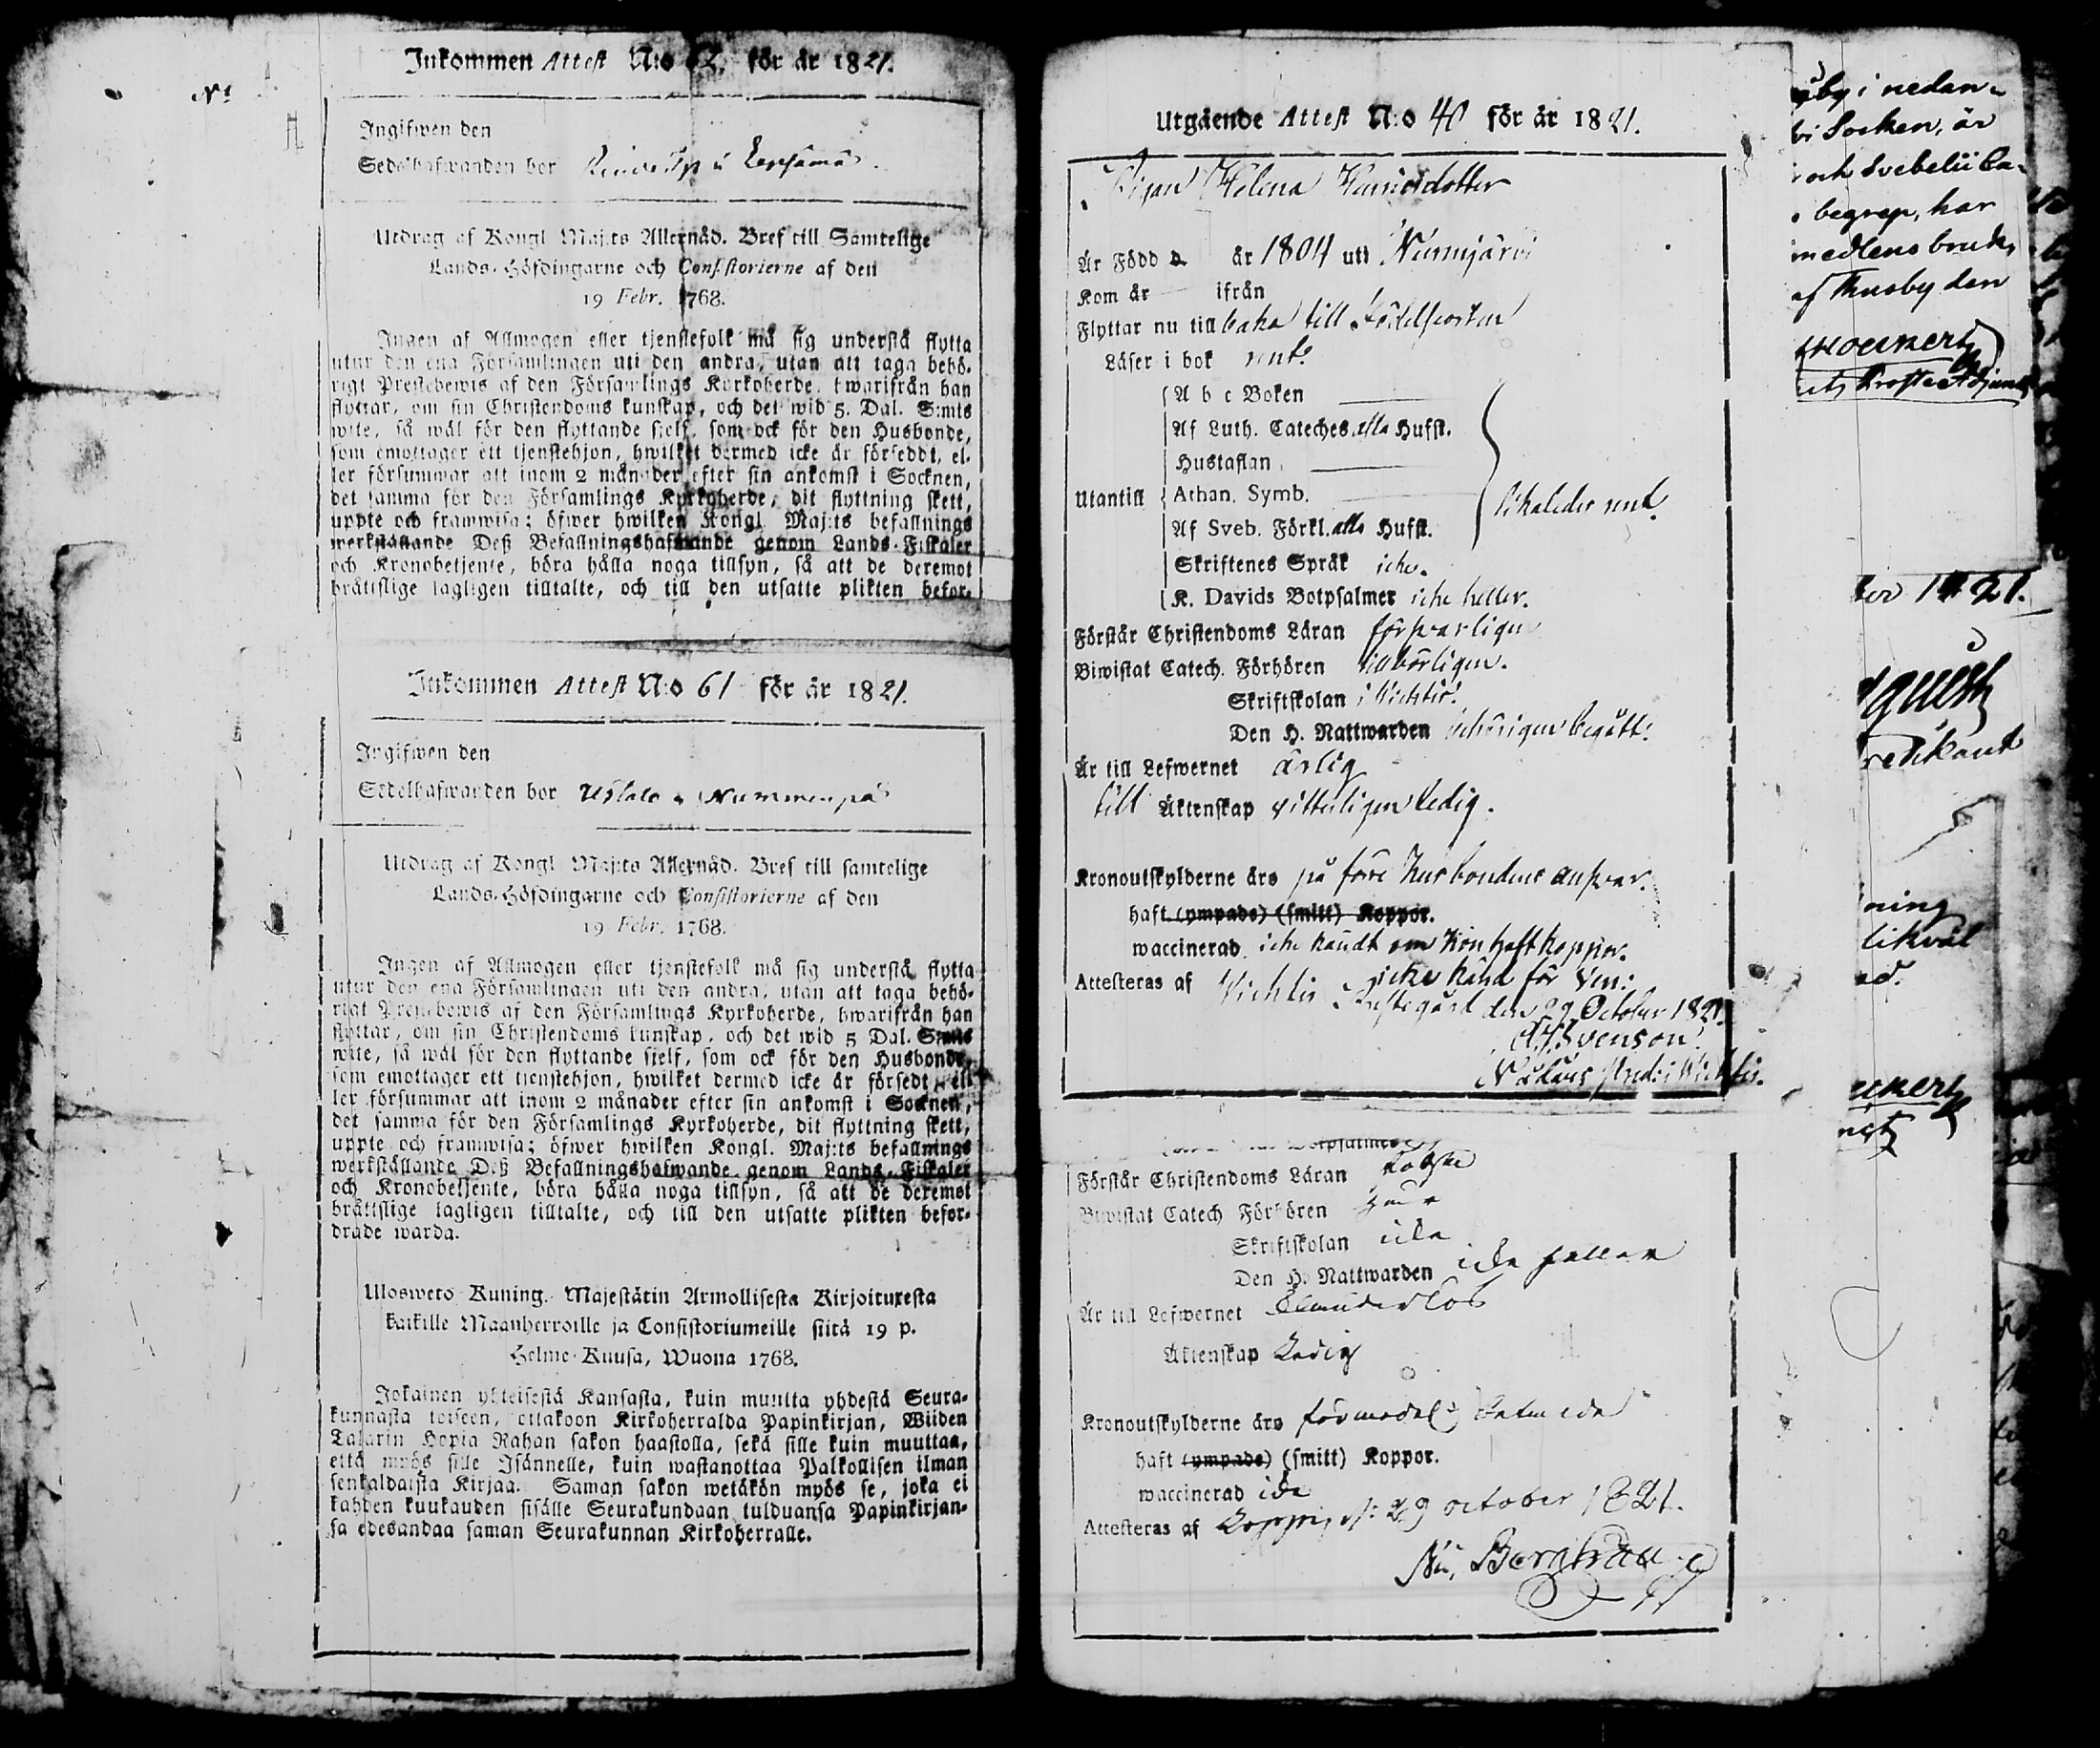 Inkommen Attest N:o 62. för år 1821.
Ingifwen den
Sedelhafwanden bor
Utdrag af Kongl Maj:ts Allernåd. Bref till Samtelige
Lands-Höfdingarne och Consistorierne af den
19 Febr. 1768.
Ingen af Allmogen eller tjenstefolk må sig understå flytta
utur den ena Församlingen uti den andra, utan att taga behö-
rigt Prestebewis af den Församlings Kyrkoherde, hwarifrån han
flyttar, om sin Christendoms kunskap, och det wid 5. Dal. S:mts
wite, så wäl för den flyttande sjelf, som ock för den Husbonde,
som emottager ett tjenstehjon, hwilket dermed icke är förseddt, el-
ler försummar att inom 2 månader efter sin ankomst i Socknen,
det samma för den Församlings Kyrkoherde, dit flyttning skett,
uppte och framwisa; öfwer hwilken Kongl Maj:ts befallnings
werkställande Deß Befallningshafwande genom Lands-Fiskaler
och Kronobetjente, böra hålla noga tillsyn, så att de deremot
bråttslige lagligen tilltalte, och till den utsatte plikten befor-
Inkommen Attest N:o 61 för år 1821.
Ingifwen den
Sedelhafwanden bor Uskala Nummenpä
Utdrag af Kongl Maj:ts Allernåd. Bref till samtelige
Lands-Höfdingarne och Consistorierne af den
19 Febr. 1768.
Ingen af Allmogen eller tjenstefolk må sig understå flytta
utur den ena Församlingen uti den andra, utan att taga behö-
rigt Prestebewis af den Församlings Kyrkoherde, hwarifrån han
flyttar, om sin Christendoms kunskap, och det wid 5 Dal. S:mts
wite, så wäl för den flyttande sjelf, som ock för den Husbonde,
som emottager ett tjenstehjon, hwilket dermed icke är försedt, el-
ler försummar att inom 2 månader efter sin ankomst i Socknen,
det samma för den Församlings Kyrkoherde, dit flyttning skett,
uppte och framwisa; öfwer hwilken Kongl. Maj:ts befallnings
werkställande Deß Befallningshafwande genom Lands-Fiskaler
och Kronobetjente, böra hålla noga tillsyn, så att de deremot
bråttslige lagligen tilltalte, och till den utsatte plikten befor-
drade warda.
Ulosweto Kuning. Majestätin Armollisesta Kirjoituxesta
kaikille Maanherroille ja Consistoriumeille siitä 19 p.
Helme-Kuusa, Wuona 1768.
Jokainen yhteisestä Kansasta, kuin muutta yhdestä Seura-
kunnasta toiseen, ottakoon Kirkoherralda Papinkirjan, Wiiden
Talarin Hopia Rahan sakon haastolla, sekä sille kuin muuttaa,
että myös sille Isännelle, kuin wastanottaa Palkollisen ilman
senkaldaista Kirjaa. Saman sakon wetäkön myös se, joka ei
kahden kuukauden sisälle Seurakundaan tulduansa Papinkirjan-
sa edesandaa saman Seurakunnan Kirkoherralle.
Utgående Attest N:o 40 för år 1821.
Pigan Helena Henricsdotter
Är Född d. år 1804 uti Nurmijärvi
Kom år ifrån
Flyttar nu till baka till Födelseorten
Läser i bok rent.
A b c Boken
Af Luth. Cateches. alla Hufst.
Hustaflan
Utantill Athan. Symb.
likaledes rent.
Af Sveb. Förkl. alla Hufst.
Skriftenes Språk icke.
K. Davids Botpsalmer icke heller.
Förstår Christendoms Läran försvarligen
Biwistat Catech. Förhören tillbörligen.
Skriftskolan i Wichtis.
Den H. Nattwarden behörigen begått.
Är till Lefwernet ärlig
till Äktenskap vitterligen ledig.
Kronoutskylderne äro på förre husbondens ansvar.
haft (ympade) (smitt) Koppor.
waccinerad icke kändt om hon haft koppor.
icke känd för Ven:
Attesteras af Wichtis Prestegård den 29 October 1821.
A. J. Svenson.
Nådårs Pred: i Wichtis.
Förstår Christendoms Läran
Biwistat Catech Förhören
Skriftskolan icke
Den H. Nattwarden icke heller
Är till Lefwernet
Äktenskap Ledig
Kronoutskylderne äro
haft (ympade) (smitt) Koppor.
waccinerad icke
Attesteras af 29 october 1821.
by i nedan-
Socken, är
och Svebelii Ca-
begrep, har
medlens bruk,
af Thusby den
1821.
ning
likväl